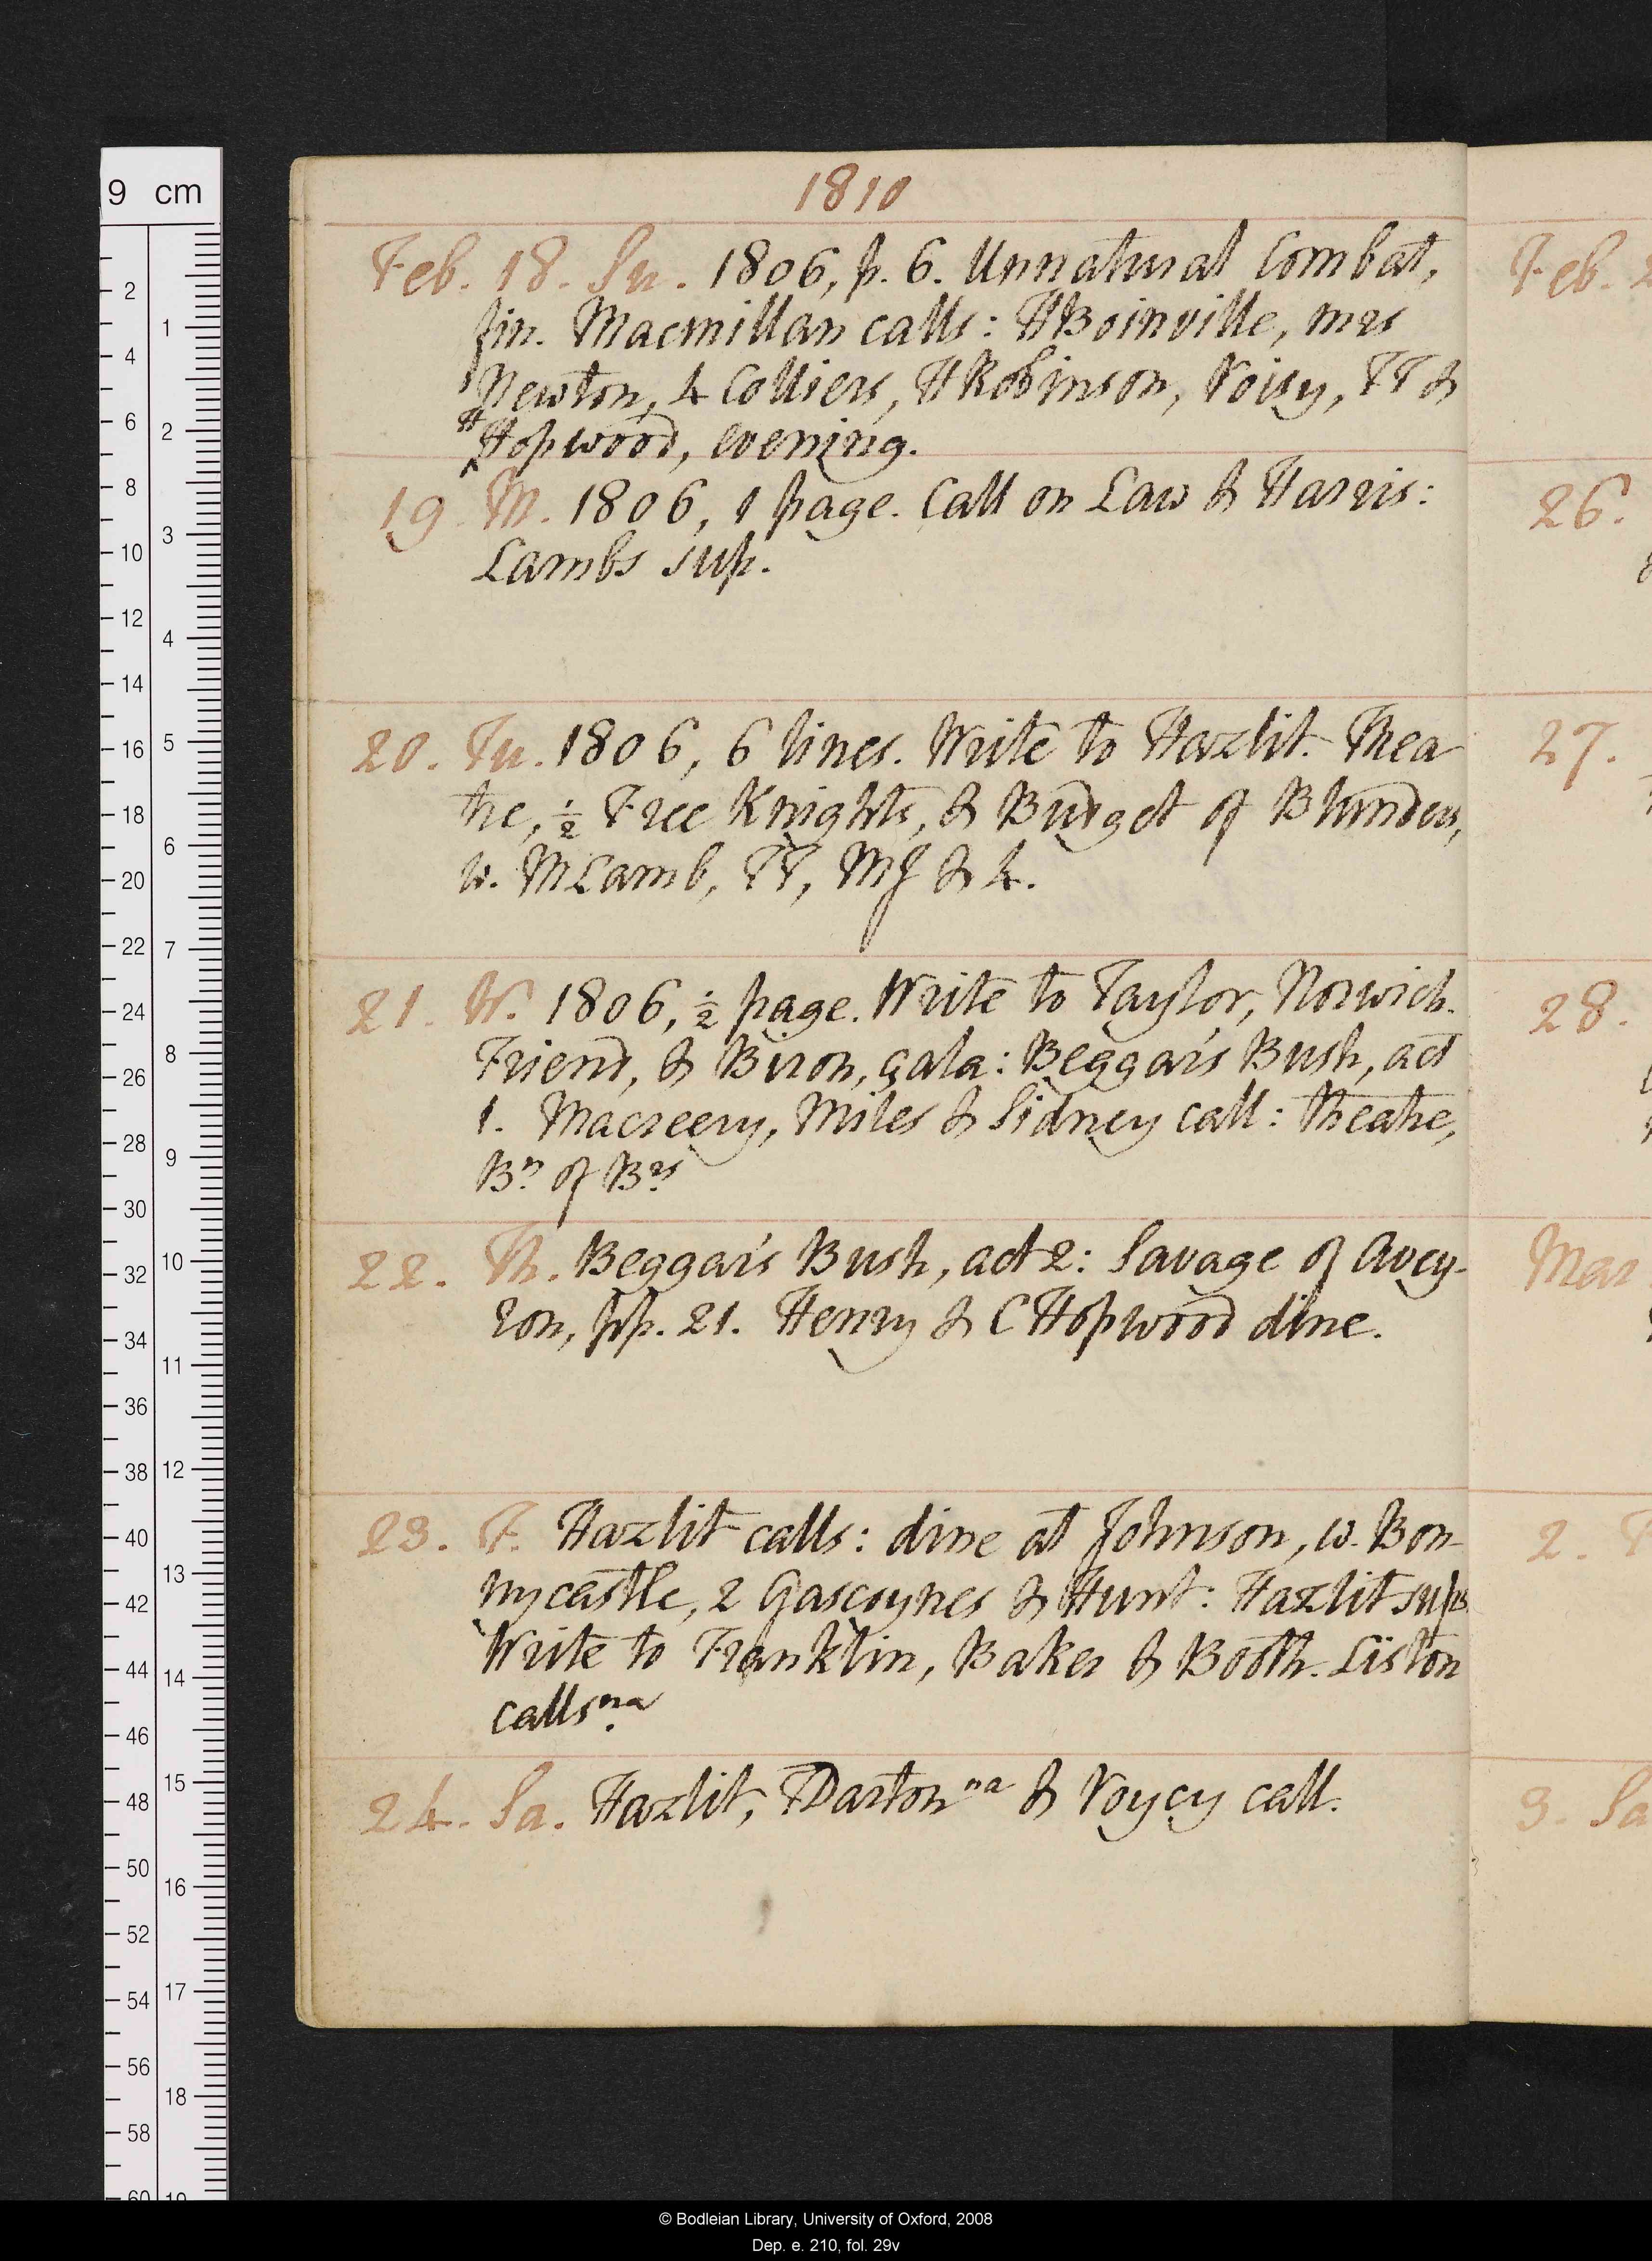 1810
Feb. 18. Su. 1806, p. 6. Unnatural Combat,
fin. Macmillan calls: HBoinville, mrs
Newton, 4 Colliers, HRobinson, Voisy, TT &
H
Hopwood, evening.
19. M. 1806, 1 page. Call on Law & Harris:
Lambs sup.
20. Tu. 1806, 6 lines. Write to Hazlit. Thea
tre, ½ Free Knights, & Budget of Blunders,
w. MLamb, TT, MJ & 4.
21. W. 1806, ½ page. Write to Taylor, Norwich.
Friend, & Biron, çala: Beggar's Bush, act
1. Macreery, Miles & Sidney call: theatre,
Bt of Brs
22. Th. Beggar's Bush, act 2: Savage of Avey-
ron, pp. 21. Henry & CHopwood dine.
23. F. Hazlit calls: dine at Johnson, w. Bon-
nycastle, 2 Gascoynes & Hunt: Hazlit sups.
Write to Franklin, Baker & Booth. Liston
calls na.
24. Sa. Hazlit, TDarton na & Voycy call.
Feb. 2
26.
27.
28.
Mar
2. F
3. Sa
9 cm
2 4 6 8 10 12 14 16 18 20 22 24 26 28 30 32 34 36 38 40 42 44 46 48 50 52 54 56 58 60
1 2 3 4 5 6 7 8 9 10 11 12 13 14 15 16 17 18 19
© Bodleian Library, University of Oxford, 2008
Dep. e. 210, fol. 29v